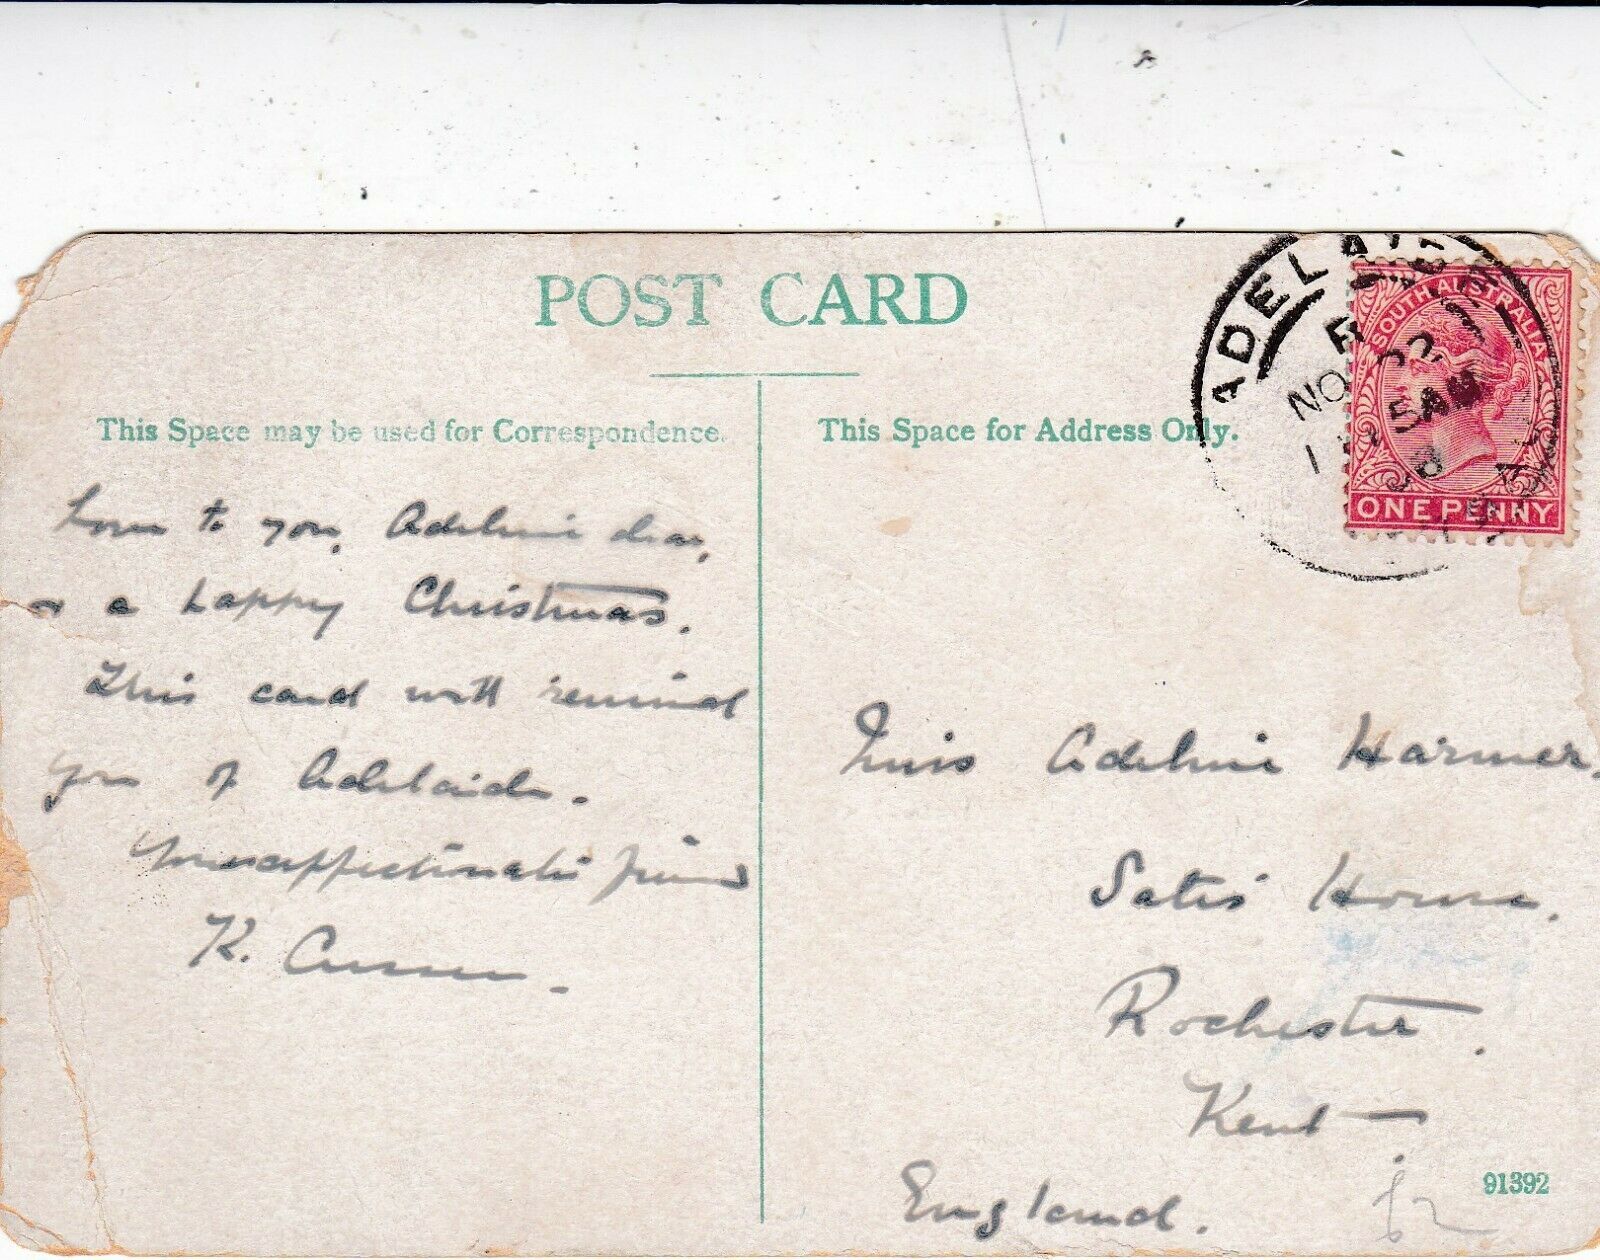 POST CARD
This Space may be used for Correspondence.
Love to you, Adeline dear,
& a happy Christmas.
This card will remind
you of Adelaide.
Your affectionate friend
K.
This Space for Address Only.
ADELAIDE
NO 22
SOUTH AUSTRALIA
ONE PENNY
Miss Adeline Harmer.
Satis House.
Rochester.
Kent
England.
91392